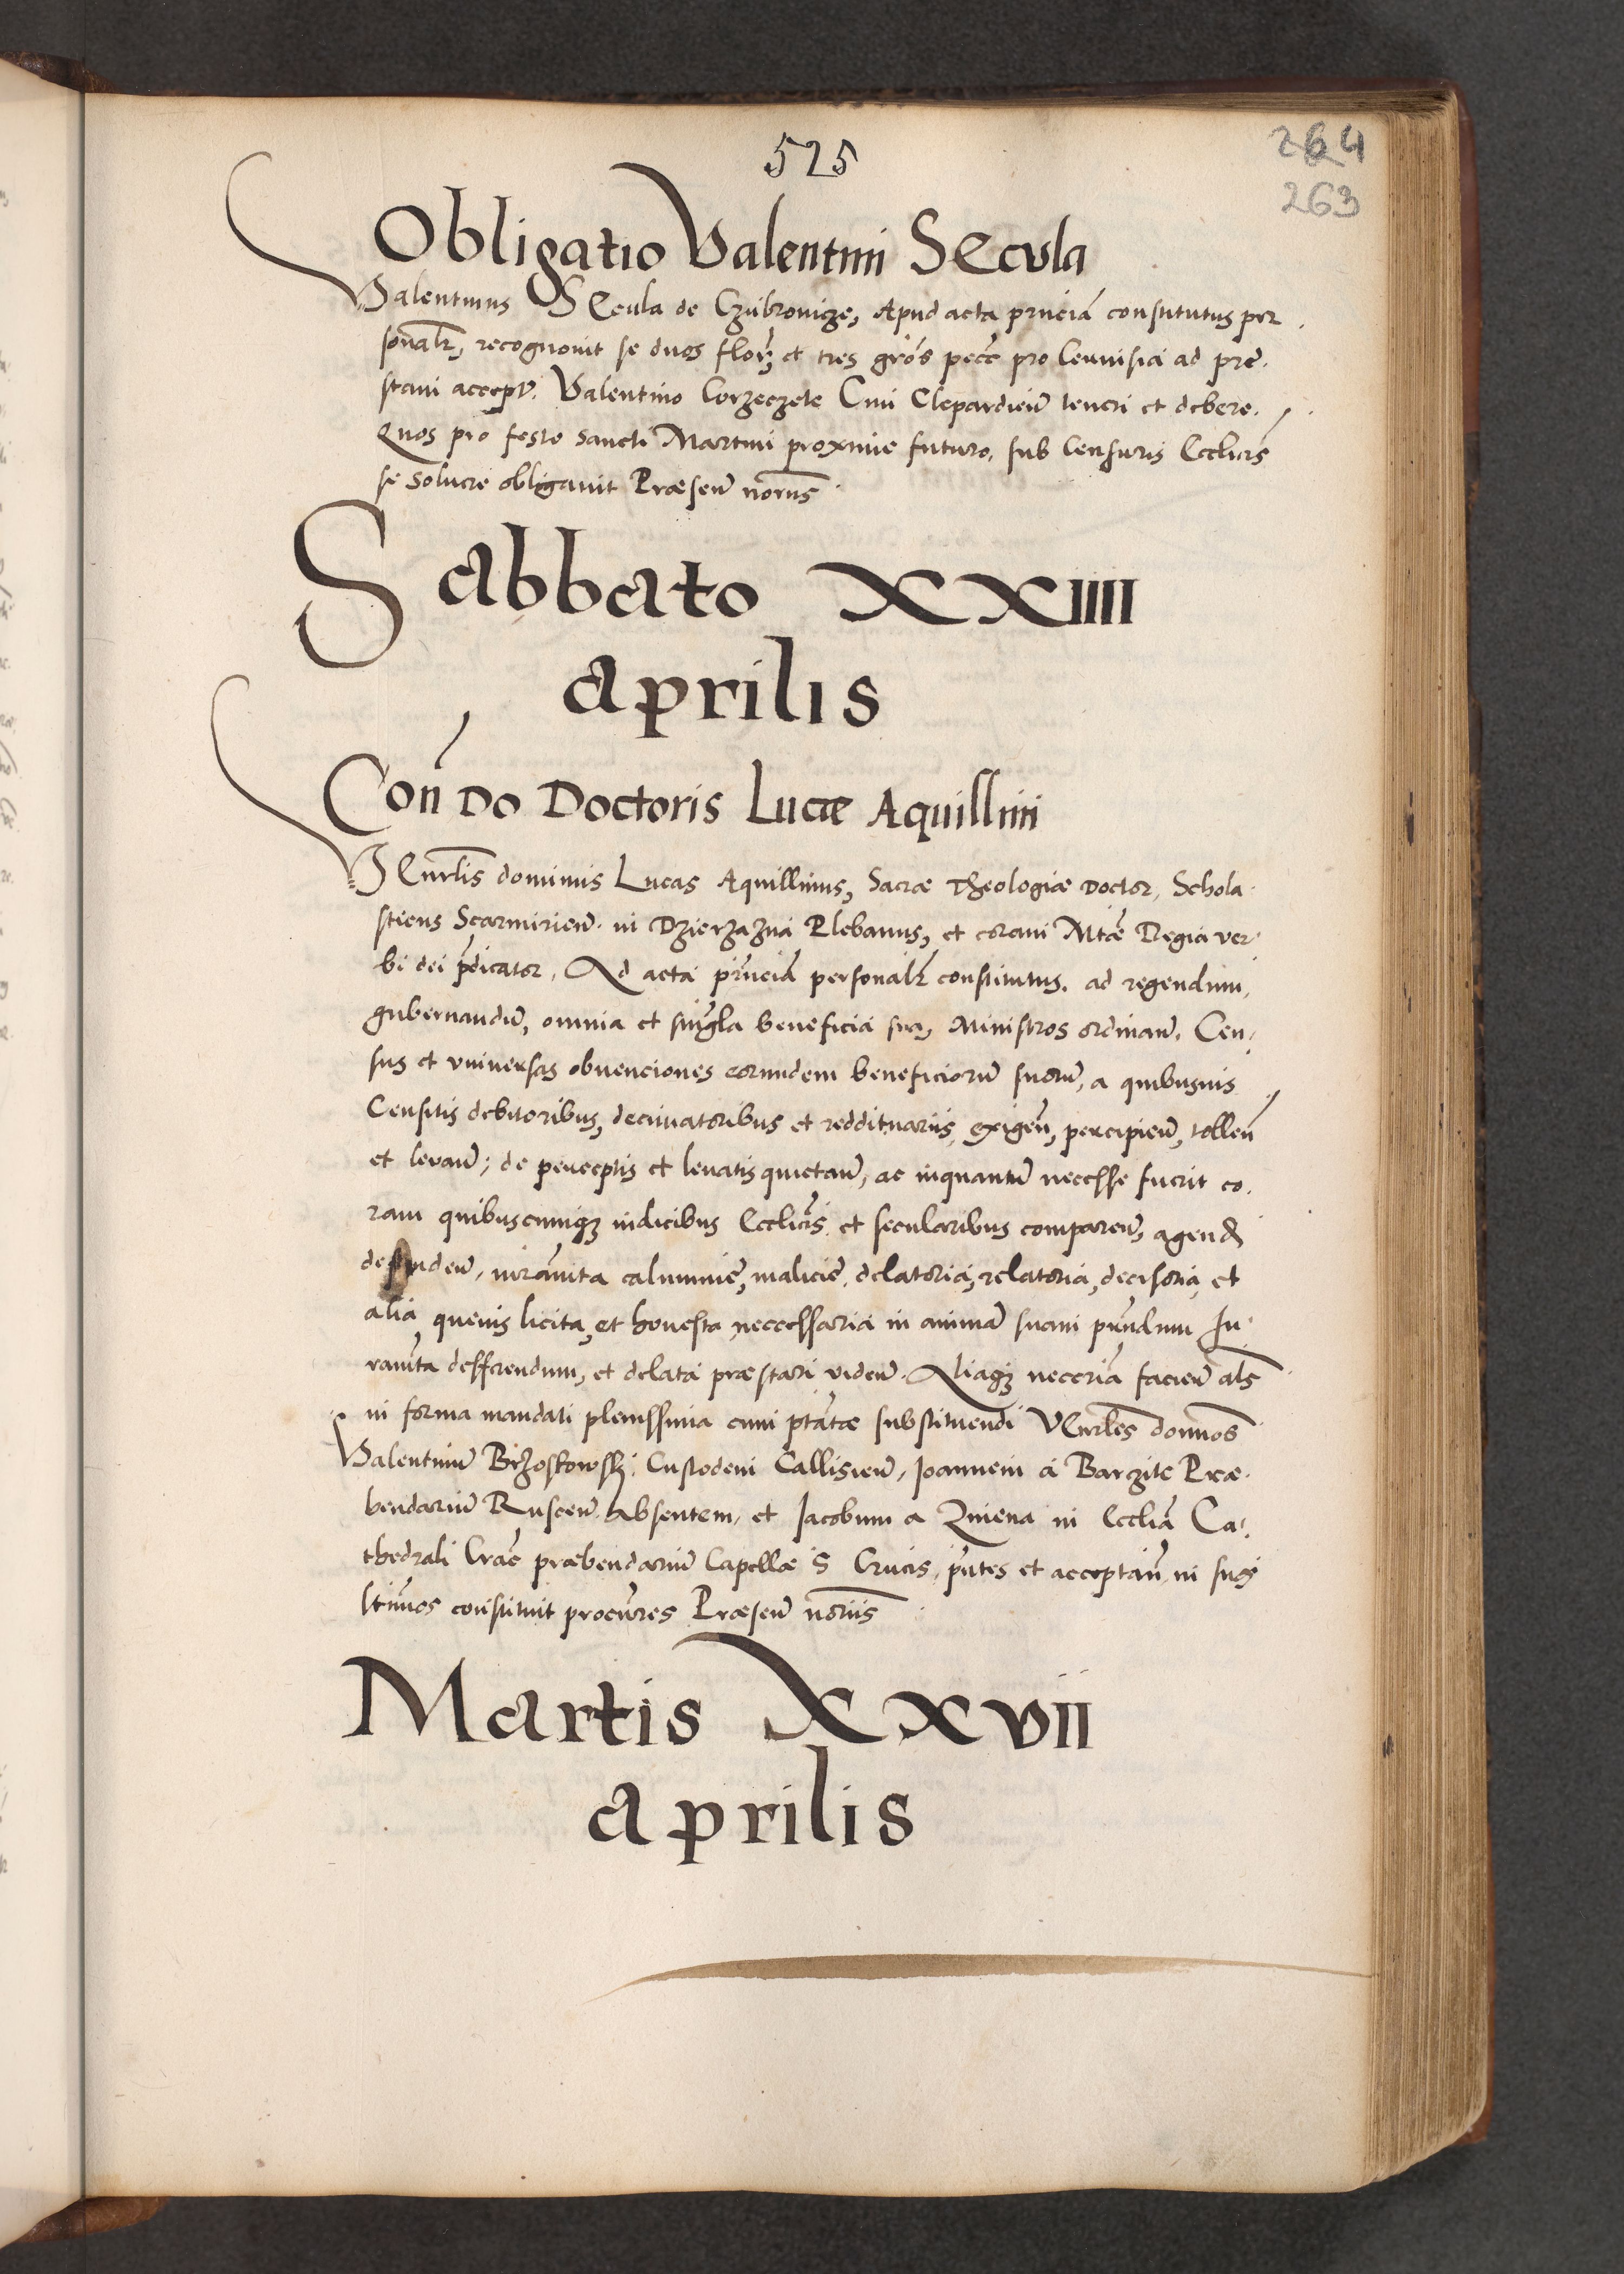 525
264
263
Obligatio Valentini Secula
Valentinus Secula de Czubrowicze, Apud acta pñciã constitutus per
sonalr, recognovit se duos florz et tres gros pecc pro Cerevisia ad pre
stam accept. Valentino Corzeczele Civi Clepardieñ teneri et debere.
Quos pro festo sancti Martini proxime futuro, sub Censuris Ecclicis
se soluere obligavit Præsen notriis
Sabbato XXIIII
aprilis
Con DO Doctoris Lucæ Aquillini
VEnrlis dominus Lucas Aquillinus, Sacræ Theologiæ Doctor, Schola
sticus Scarmirien in Dzierzazna Plebanus, et coram Mtãe Regia ver
bi dei pdicator, Ad acta pñciã personalr constitutus. ad regendum,
gubernandũ, omnia et singla beneficia sua, Ministros ordinañ, Cen
sus et vniversas obvenciones eorundem beneficiorũ suorũ, a quibusvis
Censitis debitoribus, decimatoribus et reddituariis, exigeñ, percipieñ, tolleñ
et levañ, de perceptis et levatis quietañ, ac inquantũ necesse fuerit co
ram quibuscunqz iudicibus Ecclicis et secularibus compareñ, agend
defendeñ, iuramta calumnie, malicie, delatoria, relatoria, decisoria, et
alia quevis licita, et honesta necessaria in animã suam prestandum Iu
ramta defferendum, et delata præstari videñ. Aliaqz neceria facieñ als
in forma mandati plenissima cum ptãte substituendi VEnrles domnos
Valentinũ Brzoskowskj Custodem Callisieñ, Joannem a Barczile Præ
bendariũ Rusceñ Absentem, et Jacobum a Zniena in Ecclia Ca
thedrali Craē præbendariũ Capellæ S Crucis, pñtes et acceptañ, in suos
itimos constituit procures Præseñ notriis
Martis XXVII
aprilis